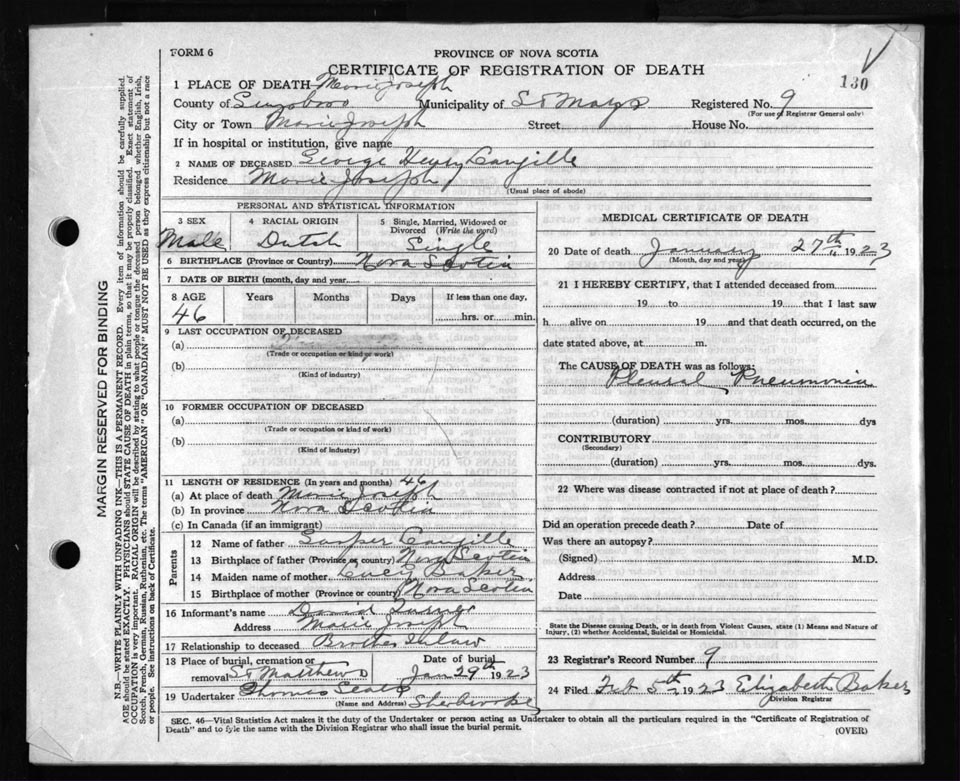 FORM 6
PROVINCE OF NOVA SCOTIA
CERTIFICATE OF REGISTRATION OF DEATH
130
1 PLACE OF DEATH Marie Joseph
County of Municipality of St Marys Registered No. 9
(For use of Registrar General only)
City or Town Marie Joseph Street House No.
If in hospital or institution, give name
2 NAME OF DECEASED George Henry
Residence Marie Joseph
(Usual place of abode)
PERSONAL AND STATISTICAL INFORMATION
3 SEX 4 RACIAL ORIGIN 5 Single, Married, Widowed or Divorced (Write the word)
Male Dutch Single
6 BIRTHPLACE (Province or Country) Nova Scotia
7 DATE OF BIRTH (month, day and year)
8 AGE Years Months Days If less than one day,
46 hrs. or min.
9 LAST OCCUPATION OF DECEASED
(a)
(Trade or occupation or kind of work)
(b)
(Kind of industry)
10 FORMER OCCUPATION OF DECEASED
(a)
(Trade or occupation or kind of work)
(b)
(Kind of industry)
11 LENGTH OF RESIDENCE (In years and months) 46
(a) At place of death Marie Joseph
(b) In province Nova Scotia
(c) In Canada (if an immigrant)
Parents
12 Name of father
13 Birthplace of father (Province or country) Nova Scotia
14 Maiden name of mother Baker
15 Birthplace of mother (Province or country) Nova Scotia
16 Informant's name David Turner
Address Marie Joseph
17 Relationship to deceased Brother Inlaw
18 Place of burial, cremation or removal St Matthews Date of burial Jan 29th 1923
19 Undertaker Thomas
(Name and Address) Sherbrooke
MEDICAL CERTIFICATE OF DEATH
20 Date of death January 27th 1923
(Month, day and year)
21 I HEREBY CERTIFY, that I attended deceased from
19 to 19 that I last saw
h alive on 19 and that death occurred, on the
date stated above, at m.
The CAUSE OF DEATH was as follows:
Pleural Pneumonia
(duration) yrs. mos. dys
CONTRIBUTORY
(Secondary)
(duration) yrs. mos. dys.
22 Where was disease contracted if not at place of death?
Did an operation precede death? Date of
Was there an autopsy?
(Signed) M.D.
Address
Date
State the Disease causing Death, or in death from Violent Causes, state (1) Means and Nature of
Injury, (2) whether Accidental, Suicidal or Homicidal.
23 Registrar's Record Number 9
24 Filed Feb 5th 1923 Elizabeth Baker
Division Registrar
SEC. 46—Vital Statistics Act makes it the duty of the Undertaker or person acting as Undertaker to obtain all the particulars required in the "Certificate of Registration of
Death" and to fyle the same with the Division Registrar who shall issue the burial permit.
(OVER)
MARGIN RESERVED FOR BINDING
N.B.—WRITE PLAINLY WITH UNFADING INK—THIS IS A PERMANENT RECORD. Every item of information should be carefully supplied.
AGE should be stated EXACTLY. PHYSICIANS should STATE CAUSE OF DEATH in plain terms, so that it may be properly classified. Exact statement of
OCCUPATION is very important. RACIAL ORIGIN will be described by stating to what people or tongue the deceased person belonged whether English, Irish,
Scotch, French, German, Russian, Ruthenian, etc. The terms "AMERICAN" OR "CANADIAN" MUST NOT BE USED as they express citizenship but not a race
or people. See instructions on back of Certificate.